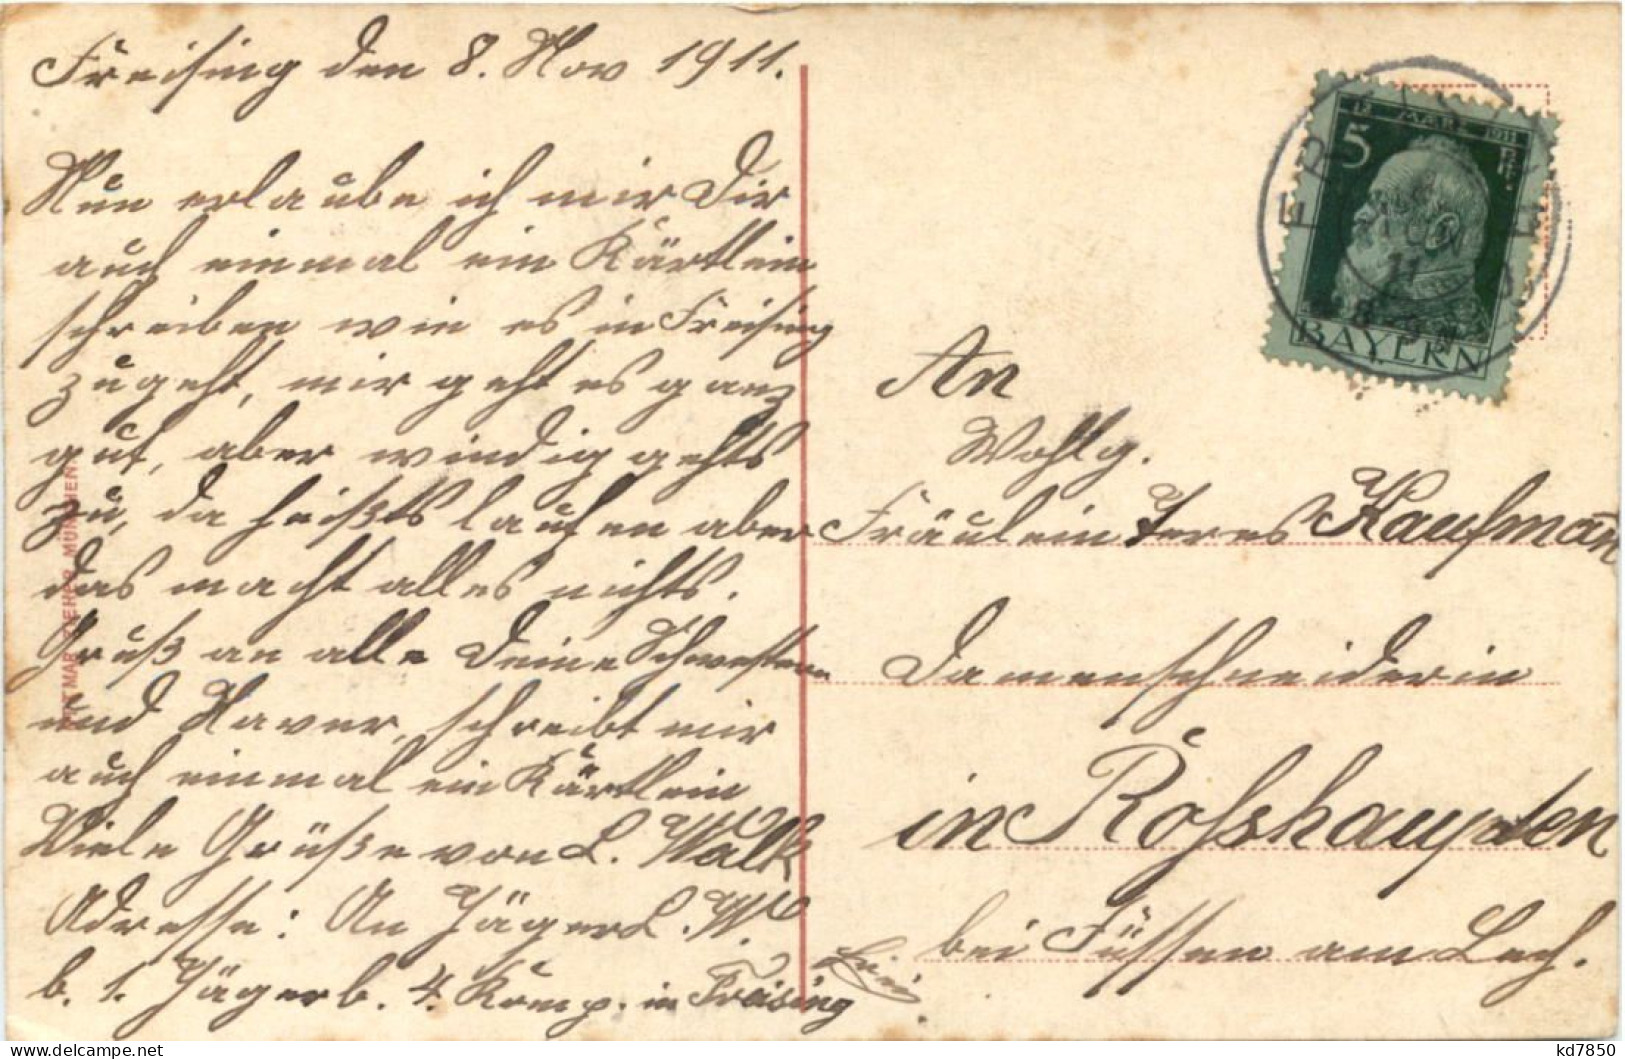 Freising den 8. Nov 1911.
Nun erlaube ich mir Dir
auch einmal ein Kärtlein
schreiben wie es in Freising
zugeht, mir geht es ganz
gut, aber windig gehts
zu, da heißts laufen aber
das macht alles nichts.
Gruß an alle Deine Schwestern
und Xaver, schreibt mir
auch einmal ein Kärtlein
Viele Grüße von L. Walk
Adresse: An Jäger L. W.
b. 1. Jägerb. 4. Komp. in Freising
An
Wohlg.
Fräulein Teres Kaufmann
Damenschneiderin
in Rosshaupten
bei Füssen am Lech.
12 MÄRZ 1911
5
BAYERN
MÜNCHEN
kd7850